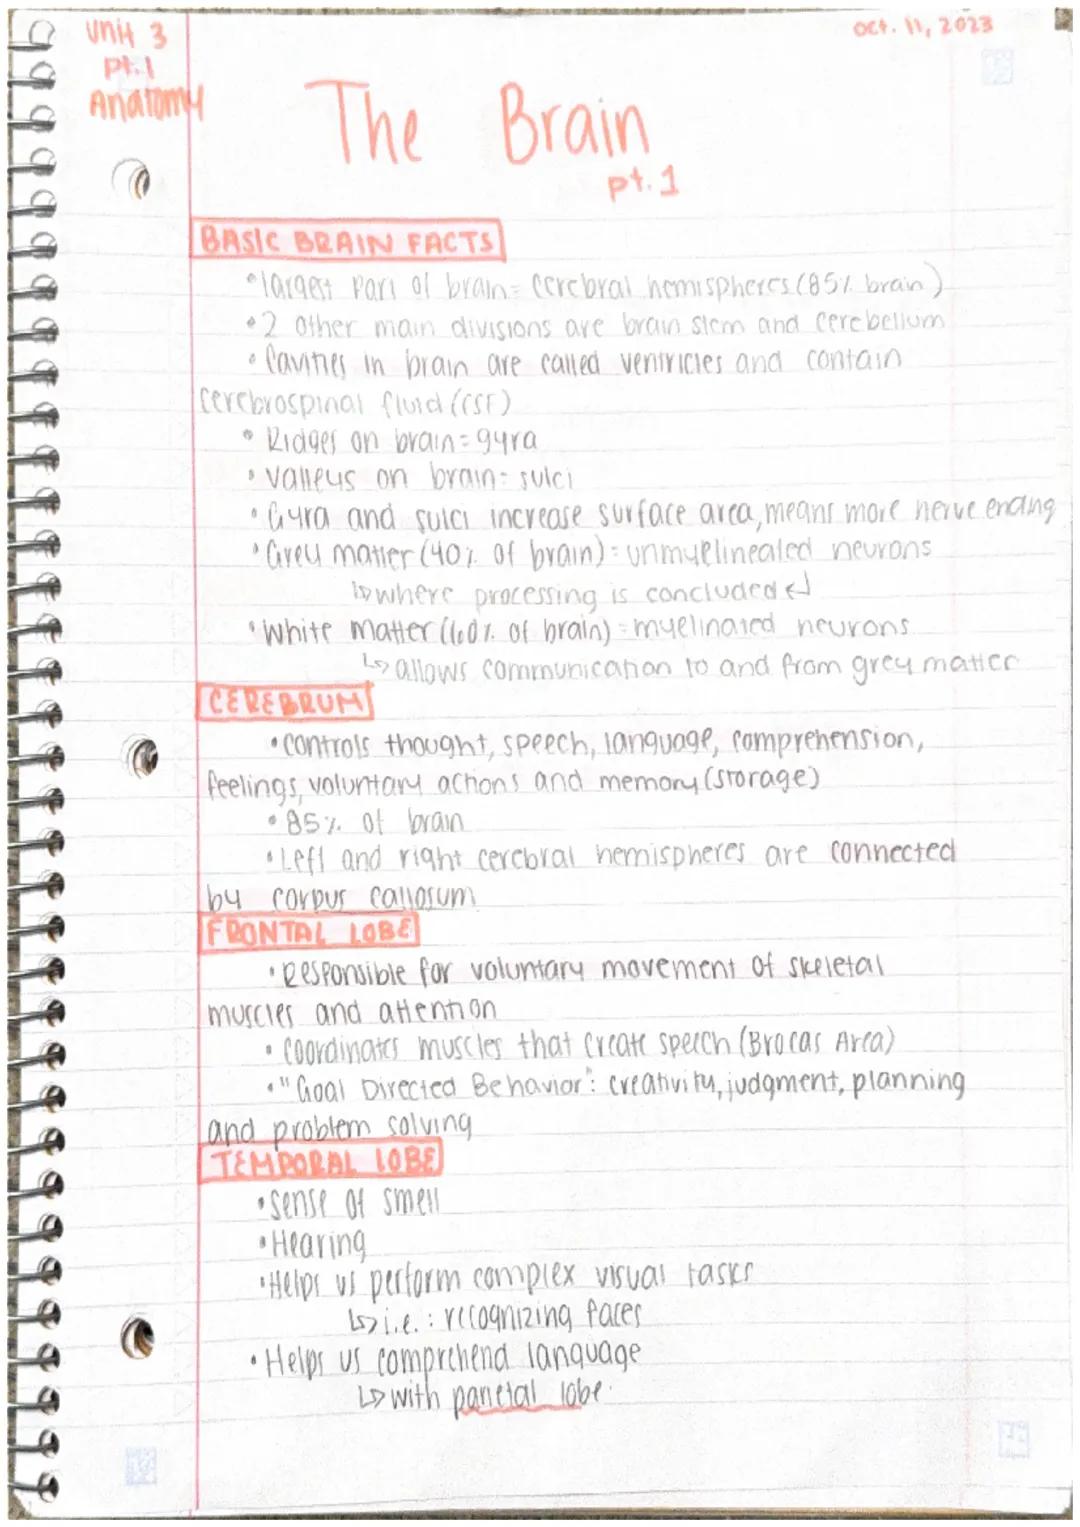 Unit 3
pt.1
Anatomy
Oct. 11, 2023
The Brain
pt. 1
BASIC BRAIN FACTS
• largest part of brain = cerebral hemispheres (85% brain)
• 2 other main divisions are brain stem and cerebellum
• Cavities in brain are called ventricles and contain
cerebrospinal fluid (CSF)
• Ridges on brain = gyra
• valleys on brain = sulci
• Gyra and sulci increase surface area, means more nerve ending
• Grey matter (40% of brain) = unmyelineated neurons
↳ where processing is concluded ↲
• White matter (60% of brain) = myelinated neurons
↳ allows communication to and from grey matter
CEREBRUM
• controls thought, speech, language, comprehension,
feelings, voluntary actions and memory (storage)
• 85% of brain
• Left and right cerebral hemispheres are connected
by corpus callosum
FRONTAL LOBE
• Responsible for voluntary movement of skeletal
muscles and attention
• Coordinates muscles that create speech (Brocas Area)
• "Goal Directed Behavior": creativity, judgment, planning
and problem solving
TEMPORAL LOBE
• Sense of smell
• Hearing
• Helps us perform complex visual tasks
↳ i.e.: recognizing faces
• Helps us comprehend language
↳ with parietal lobe.